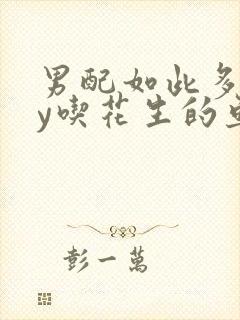 男配如此多
y喫花生的
彭一萬